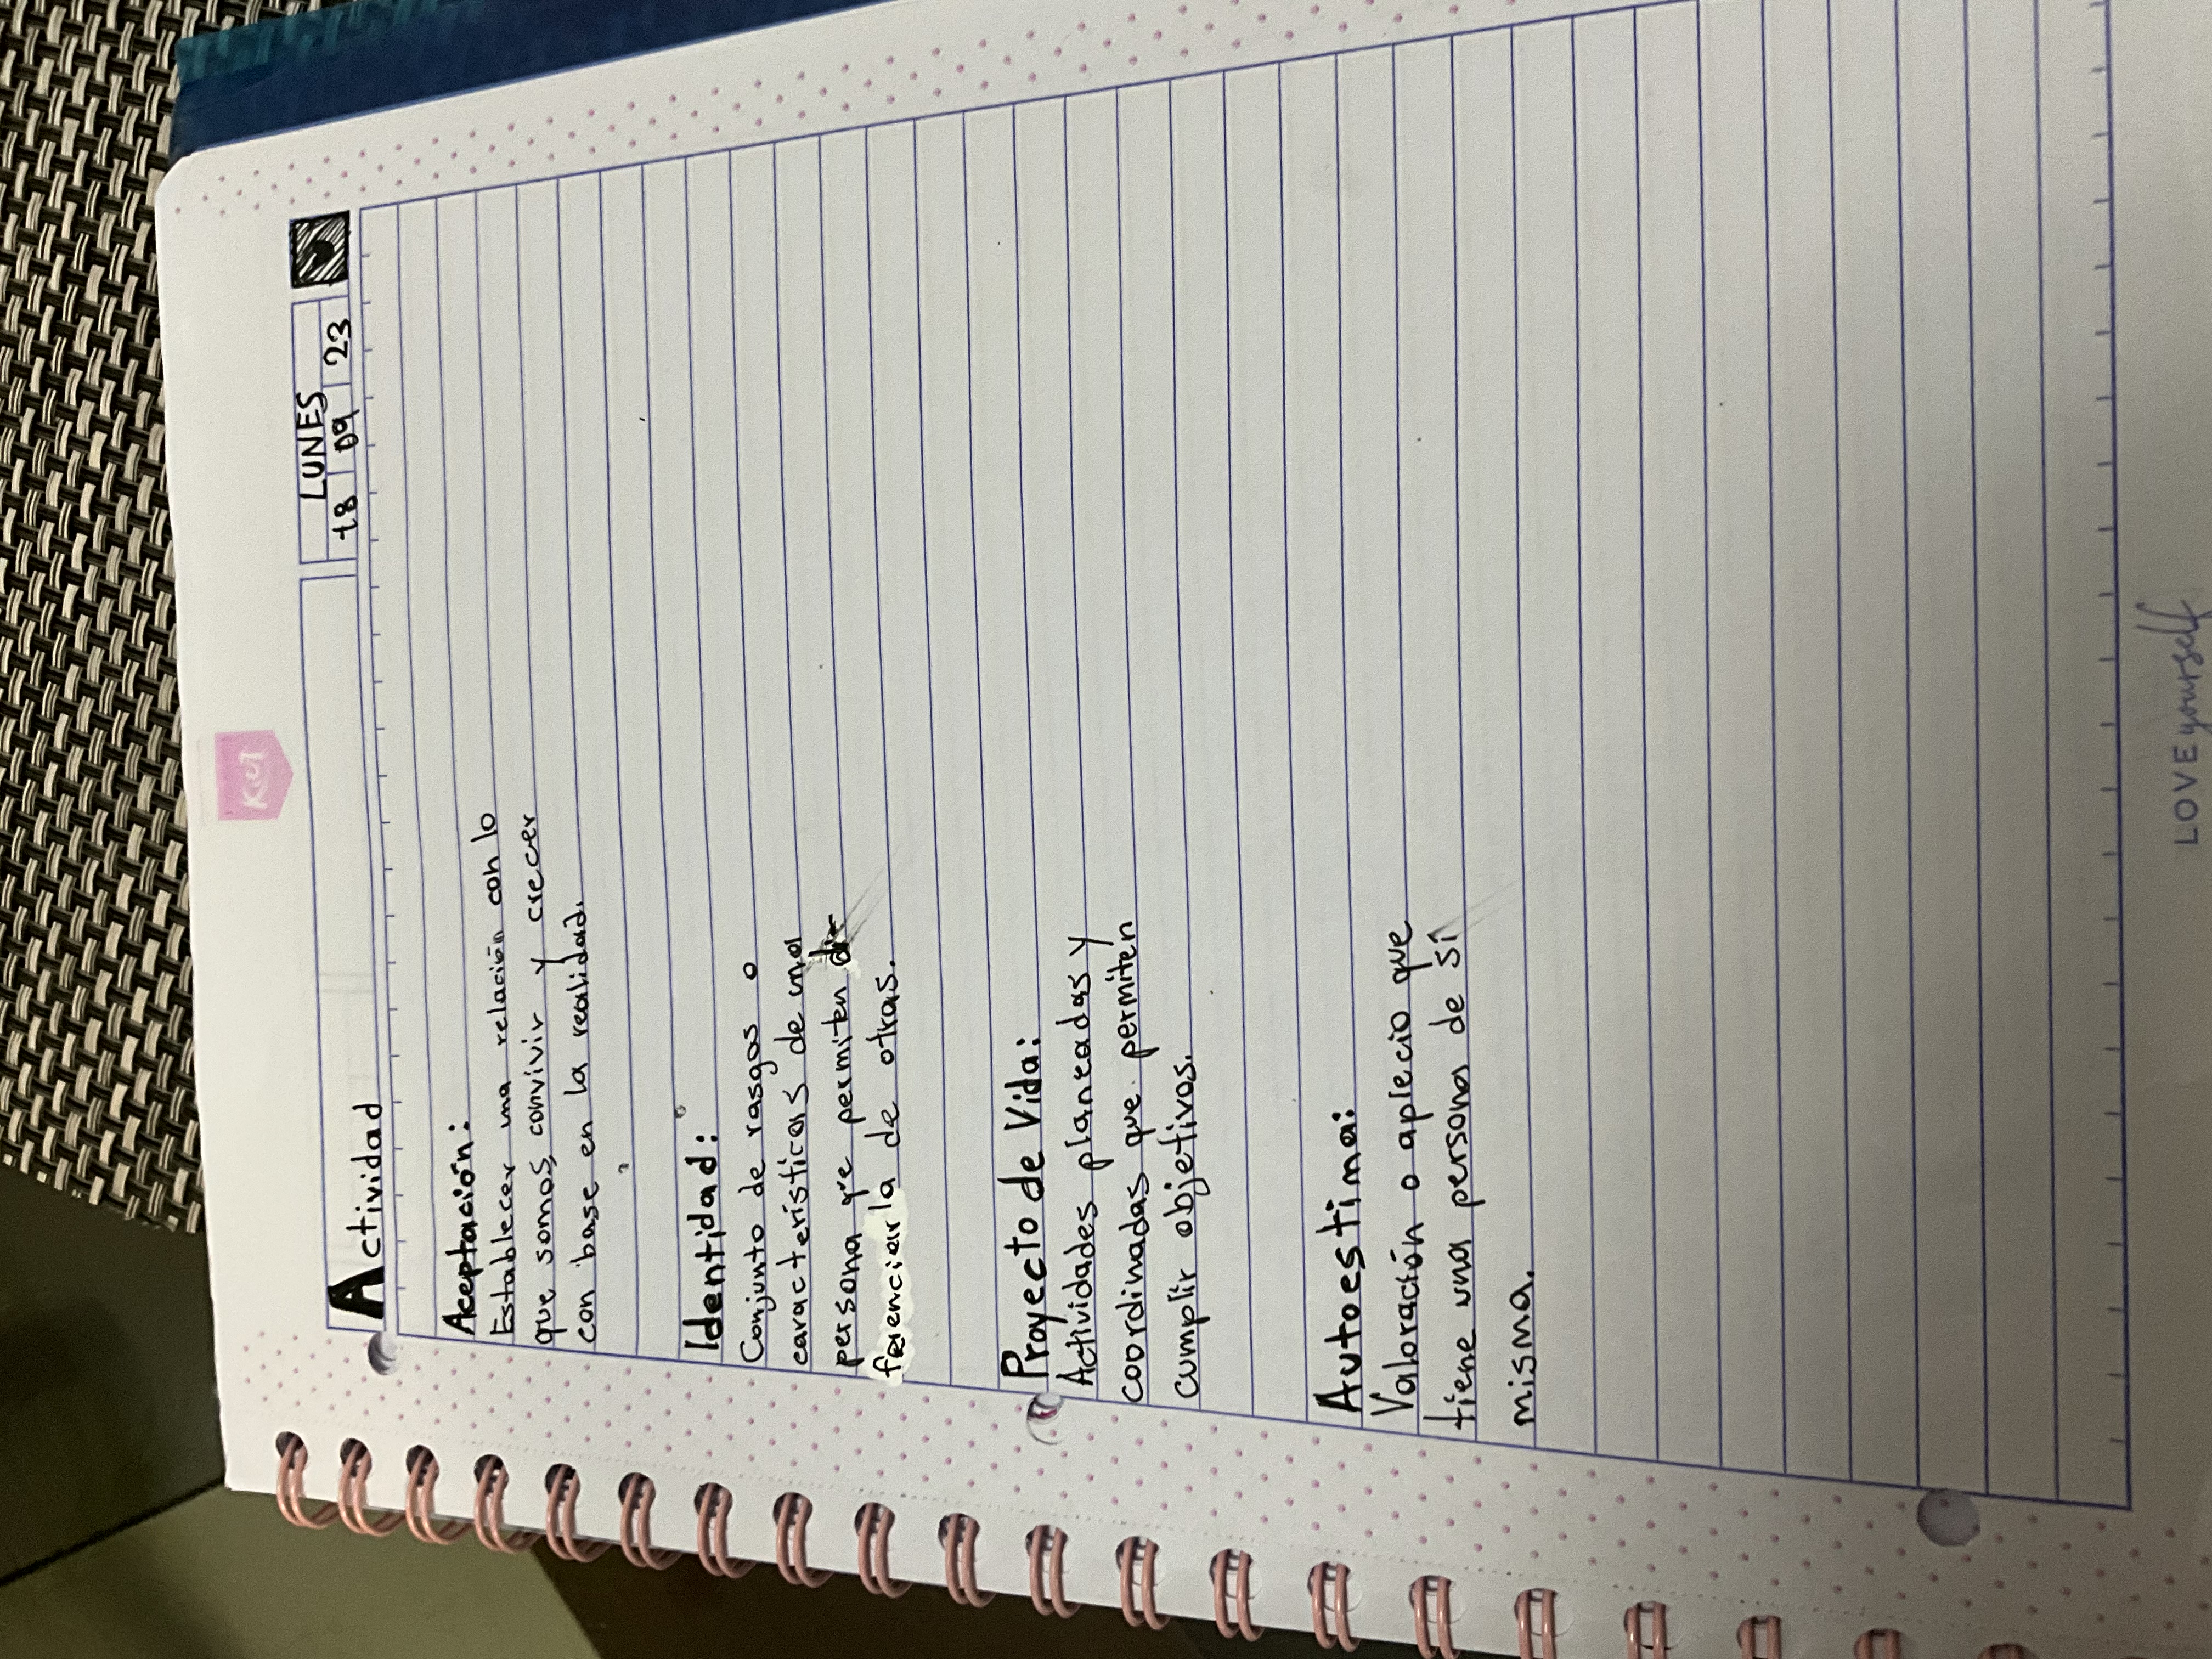 Kiut
LUNES
18 09 23
Actividad
Aceptación:
Establecer una relación con lo
que somos, convivir y crecer
con base en la realidad.
Identidad:
Conjunto de rasgos o
características de una
persona que permiten di-
ferenciarla de otras.
Proyecto de Vida:
Actividades planeadas y
coordinadas que permiten
cumplir objetivos.
Autoestima:
Valoración o aplecio que
tiene una persona de sí
misma.
LOVE yourself